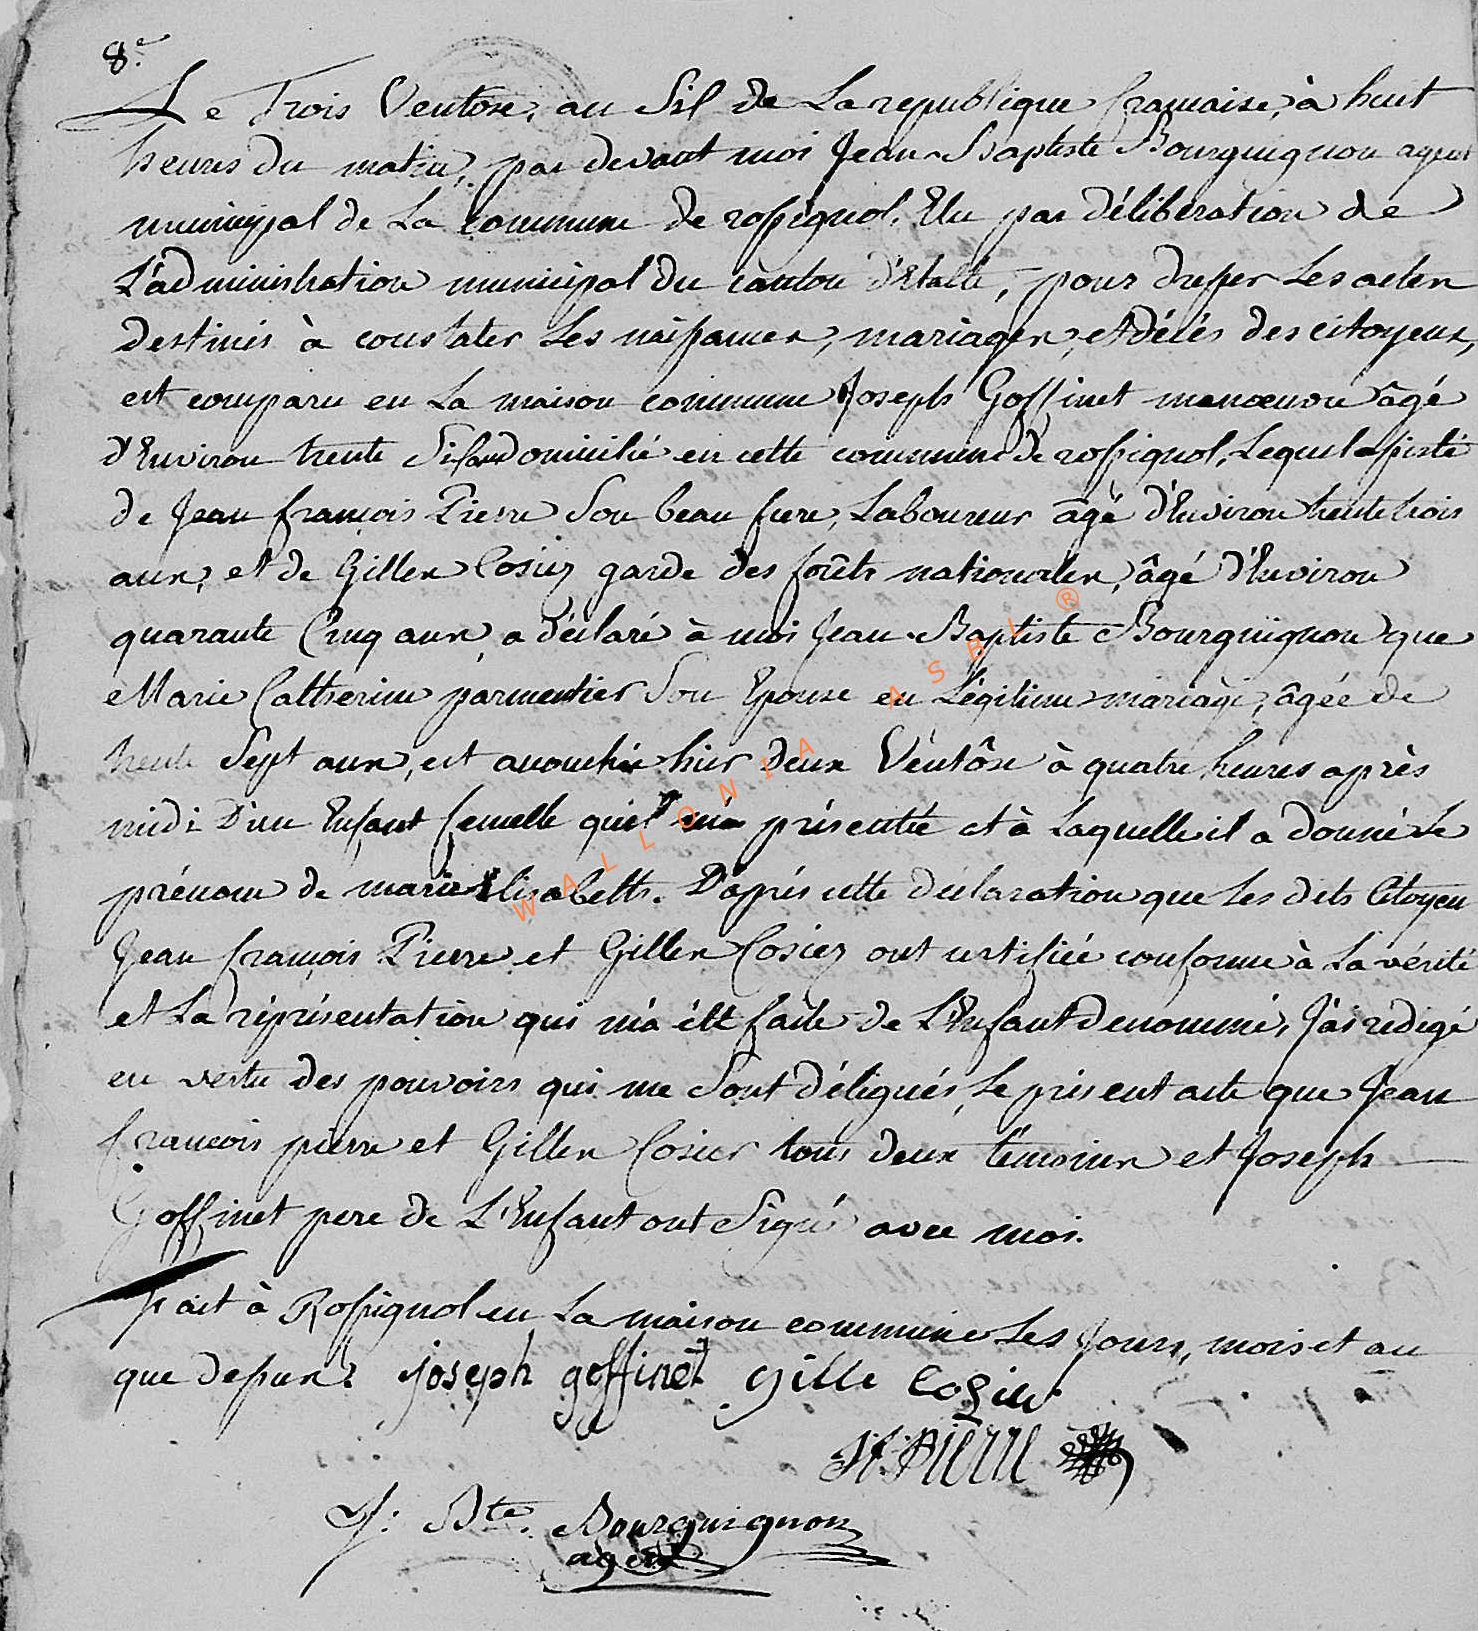 8.e
Le Trois Ventose, an Sil de La republique francaise, à huit
heures du matin, par devant moi Jean-Baptiste Bourguignon agent
municipal de La commune de rossignol, Elu par délibération de
L'administration municipal du canton d'Etalle, pour dresser Les actes
destinés à constater Les naissances, mariages, et décés des citoyens,
est comparu en La maison commune Joseph Goffinet manœuvre âgé
d'Environ trente Six ans domicilié en cette commune de rossignol, Lequel assisté
de Jean françois Pierre Son beau frere, Laboureur âgé d'Environ trente trois
ans, et de Gilles Cosiez garde des forêts nationales, âgé d'Environ
quarante Cinq ans, a déclaré à moi Jean-Baptiste Bourguignon que
Marie Catherine parmentier Son Epouse en Légitime mariage, âgée de
trente Sept ans, est accouchée hier deux Ventôse à quatre heures après
midi D'un Enfant femelle quil m'a présentée et à Laquelle il a donné Le
prénom de marie Elisabeth. D'après cette déclaration que Les dits Citoyen
Jean françois Pierre et Gilles Cosiez ont certifiée conforme à La vérité
et La réprésentation qui m'a été faite de L'Enfant denommé, J'ai redigé
en vertu des pouvoirs qui me Sont délégués, Le présent acte que Jean
francois pierre et Gilles Cosier tous deux témoins et Joseph
Goffinet pere de L'Enfant ont Signé avec moi.
Fait à Rossignol en La maison commune Les Jours, mois et an
que dessus. joseph goffinet gille Cosier
J f. PIERRE
J: Bte. Bourguignon
agent
WALLONIA ASBL ®